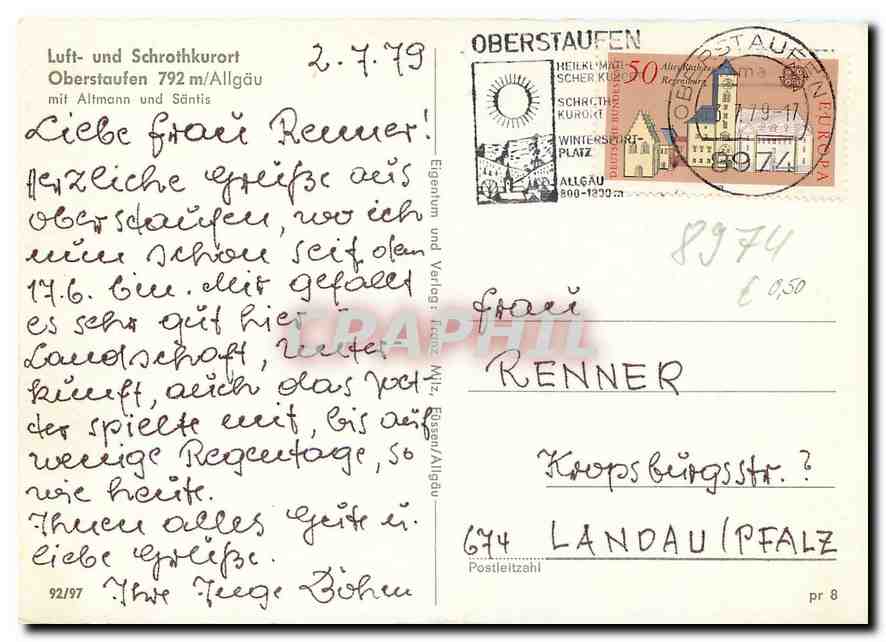 Luft- und Schrothkurort
Oberstaufen 792 m/Allgäu
mit Altmann und Säntis
2.7.79
Liebe Frau Renner!
Herzliche Grüße aus
Oberstaufen, wo ich
nun schon seit dem
17.6. bin. Mir gefällt
es sehr gut hier :
Landschaft, Unter
kunft, auch das Wet
ter spielte mit, bis auf
wenige Regentage, so
wie heute.
Ihnen alles Gute u.
liebe Grüße.
Ihre Inge Böhm
92/97
Eigentum und Verlag: Franz Milz, Füssen/Allgäu
OBERSTAUFEN
HEILKLIMATI-
SCHER KURORT
SCHROTH-
KURORT
WINTERSPORT-
PLATZ
ALLGÄU
800-1800 m
50 Altes Rathaus
Regensburg
DEUTSCHE BUNDESPOST
EUROPA
OBERSTAUFEN
7.79-17
8974
8974
€ 0,50
Frau
RENNER
Kropsburgsstr. ?
674 LANDAU/PFALZ
Postleitzahl
pr 8
CPAPHIL